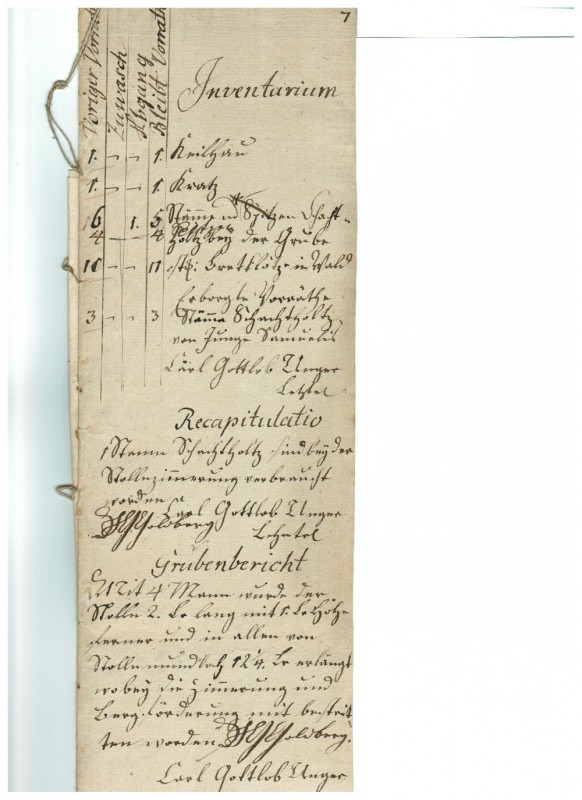 7
Voriger Vorrath
Zuwasch
Abgang
Bleibt Vorrath
Inventarium
1. — — 1. Keilhau
1. — — 1. Kratz
16 1. 5 Stämme
4 — — 4 Holtz bey der Grube
11 — — 11 Stk: Bretklötze in Wald
Erborgte Vorräthe
3 — — 3 Stämme Schachtholtz
von Junge Samuelis
Carl Gottlob Unger
Recapitulatio
1 Stamm Schachtholtz sind bey der
Stollnzimmerung verbraucht
worden
Carl Gottlob Unger
Goldberg
Grubenbericht
Mit 4 Mann wurde der
Stolln 2. Lr lang mit 1. Lr Höhe
ferner und in allen von
Stollnmundloch 12 4. Lr erlängt
wobey die Zimmerung und
Berg förderung mit bestrit
ten worden Goldberg.
Carl Gottlob Unger